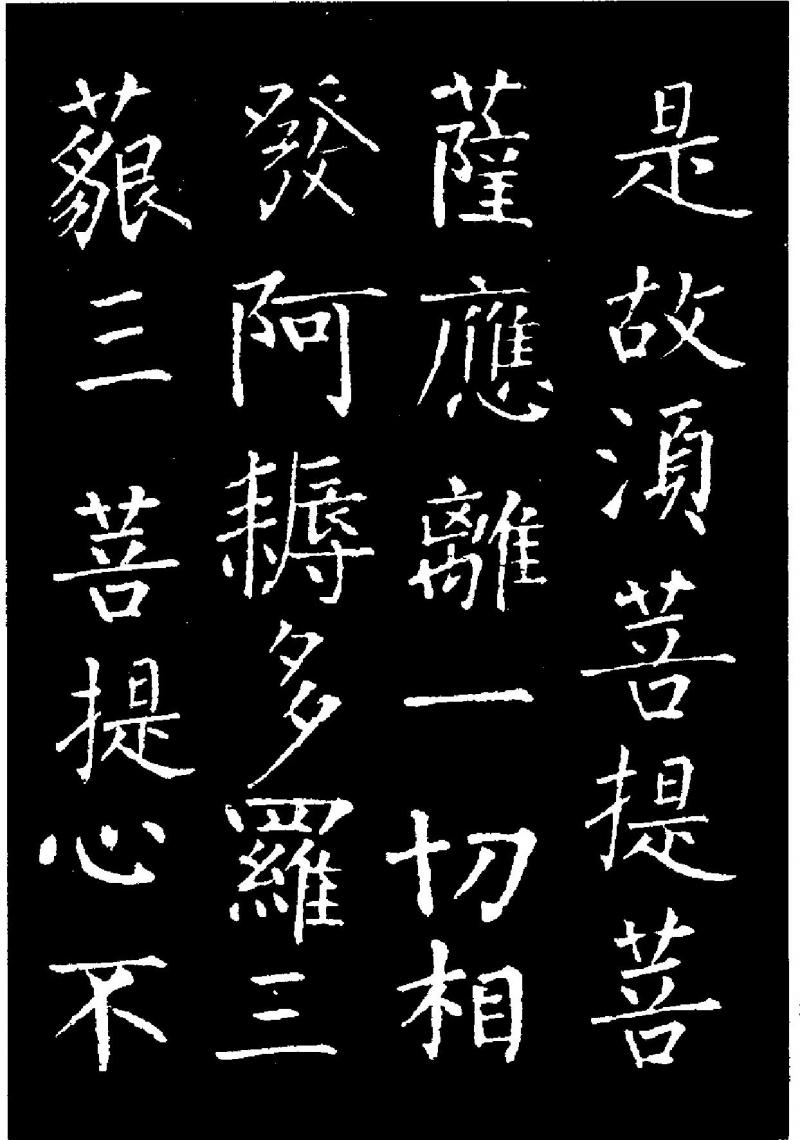 是故須菩提菩
薩應離一切相
發阿耨多羅三
藐三菩提心不